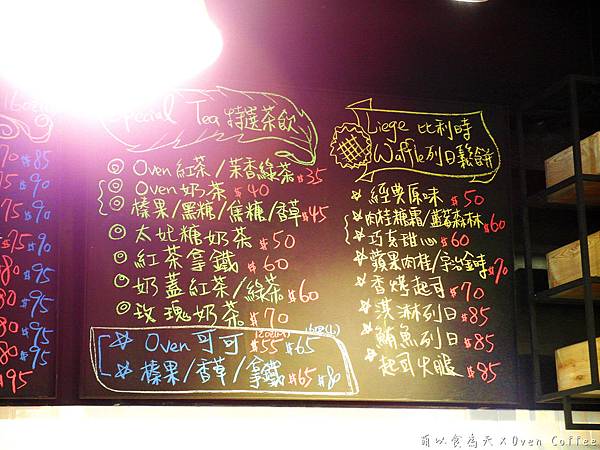 Special Tea 特選茶飲
Oven 紅茶/茉香綠茶 $35
Oven 奶茶 $40
榛果/黑糖/焦糖/香草 $45
太妃糖奶茶 $50
紅茶拿鐵 $60
奶蓋紅茶/綠茶 $60
玫瑰奶茶 $70
Oven 可可 $55 $65
榛果/香草/拿鐵 $65 $80
Liege 比利時
Waffle 列日鬆餅
經典原味 $50
肉桂糖霜/藍莓森林 $60
巧克甜心 $60
蘋果肉桂/宇治金時 $70
香烤起司 $70
淇淋列日 $85
鮪魚列日 $85
起司火腿 $85
$85
$90
$90
$90
$95
$95
$95
$95
萌以食為天 X Oven Coffee